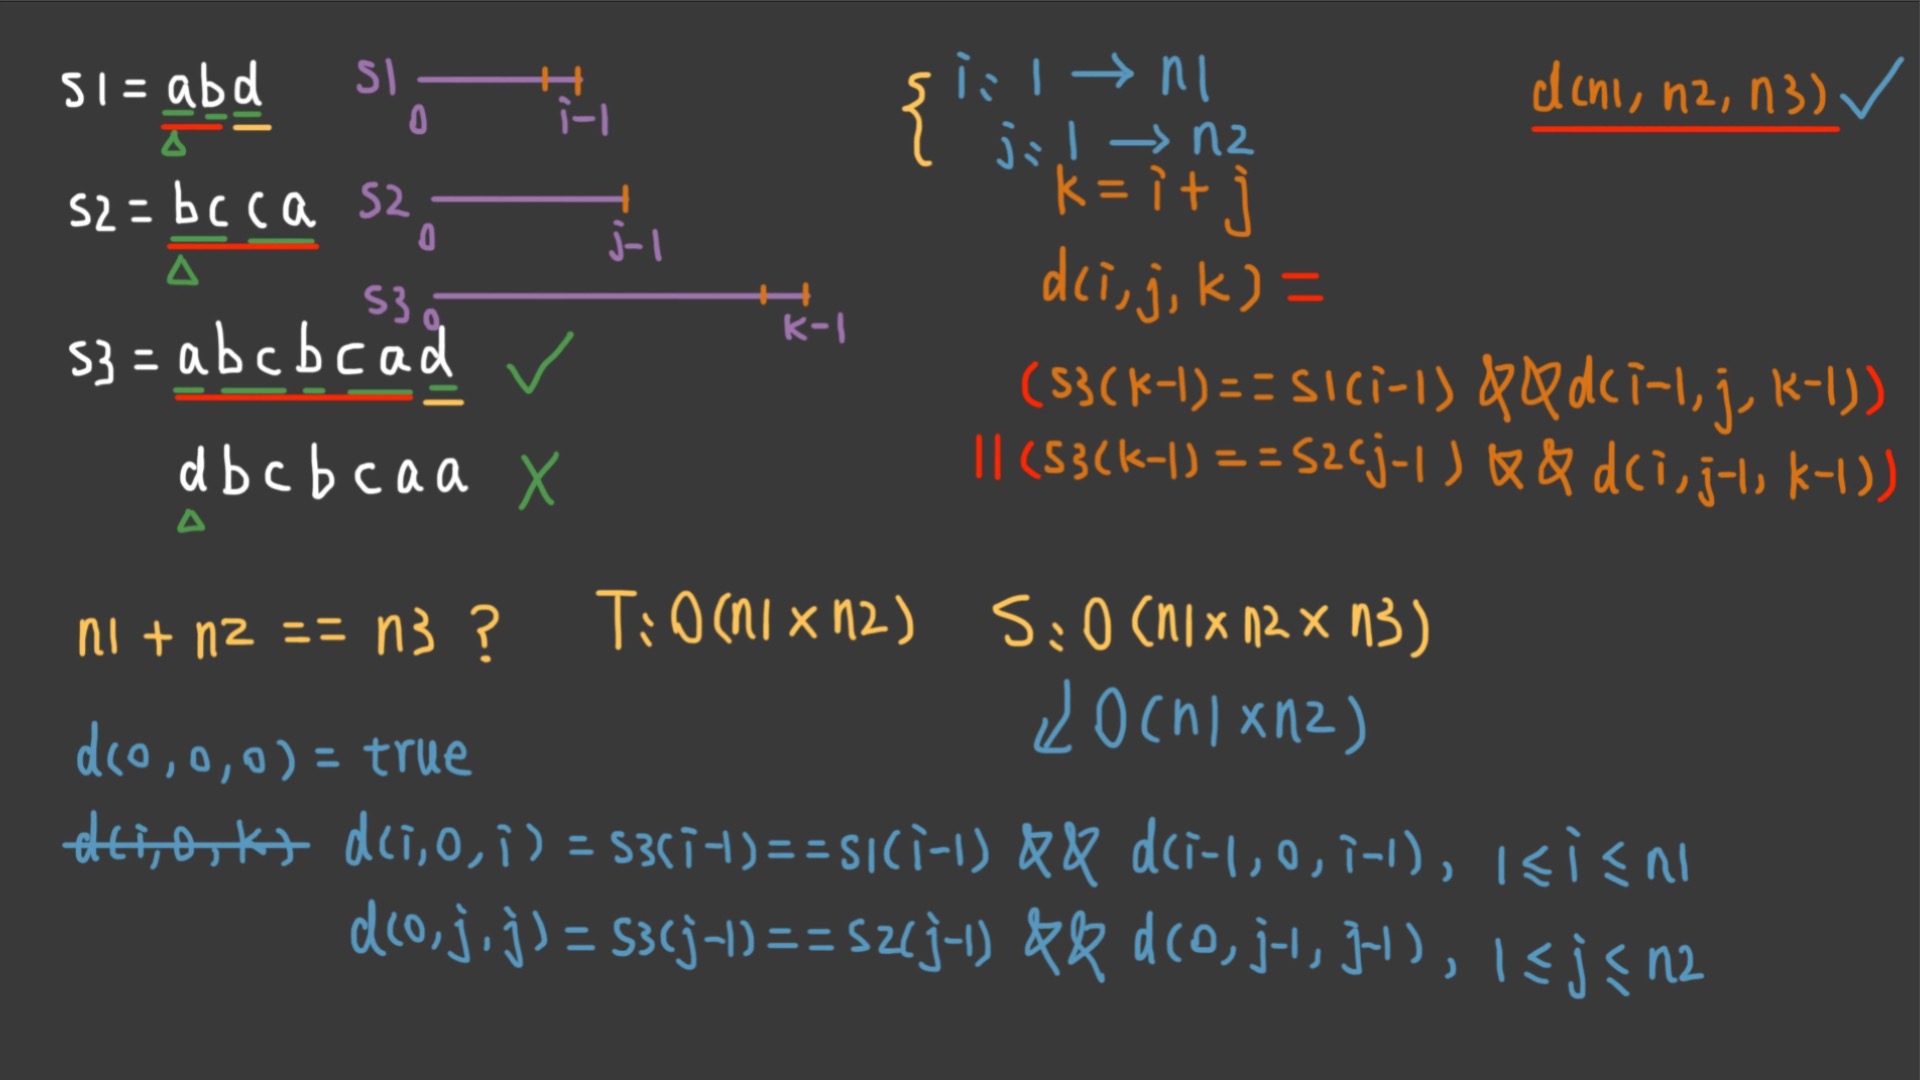 s1 = abd
s1
0
i-1
s2 = bcca
s2
0
j-1
s3
0
k-1
s3 = abcbcad ✓
dbcbcaa X
{ i: 1 → n1
j: 1 → n2
k = i + j
d(i, j, k) =
(s3(k-1) == s1(i-1) && d(i-1, j, k-1))
|| (s3(k-1) == s2(j-1) && d(i, j-1, k-1))
d(n1, n2, n3) ✓
n1 + n2 == n3 ?
T: O(n1 x n2)
S: O(n1 x n2 x n3)
↓ O(n1 x n2)
d(0, 0, 0) = true
d(i, 0, k) d(i, 0, i) = s3(i-1) == s1(i-1) && d(i-1, 0, i-1), 1 ≤ i ≤ n1
d(0, j, j) = s3(j-1) == s2(j-1) && d(0, j-1, j-1), 1 ≤ j ≤ n2